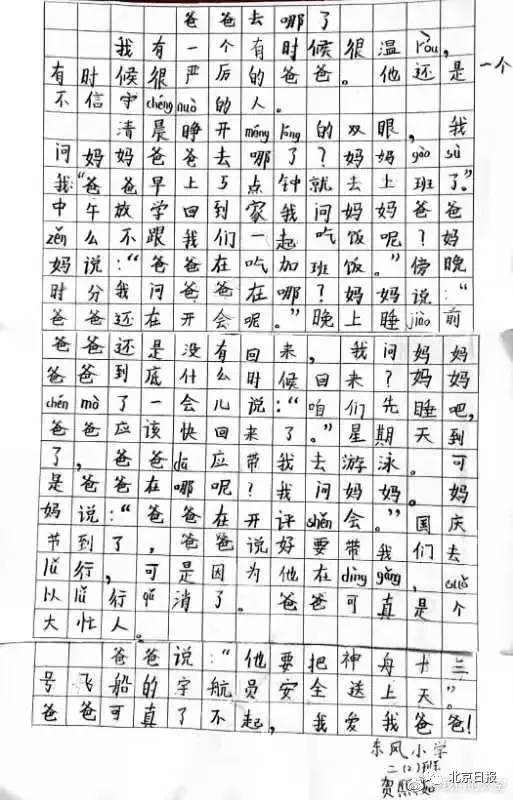 爸爸去哪了
我有一个有时候很温róu,
有时候很严厉的爸爸。他还是一个
不信守chéng nuò的人。
清晨睁开méng lóng的双眼,我
问妈妈爸爸去哪了?妈妈gào sù
我:“爸爸早上5点钟就去上班了。”
中午放学回到家我问妈妈爸爸
zěn么不跟我们一起吃饭呢?妈
妈说:“爸爸在吃加班饭。”傍晚
时分我问爸爸在哪?妈妈说:“
爸爸还在开会呢。”晚上睡jiào前
爸爸还是没有回来,我问妈妈
爸爸到底什么时候回来?妈妈
chén mò了一会儿说:“咱们先睡吧,
爸爸应该快回来了。”星期天到
了,爸爸dā应带我去游泳。可
是爸爸在哪呢?我问妈妈。妈
妈说:“爸爸在开评shěn会。”国庆
节到了,爸爸说好要带我们去
lǚ行,可是因为他在dǐng gǎng,suǒ
以lǚ行qǔ消了。爸爸可真是个
大忙人。
爸爸说:“他要把神舟十三
号飞船的宇航员安全送上天”。
爸爸可真了不起,我爱我爸爸!
东风小学
二(2)班
贺熙
北京日报